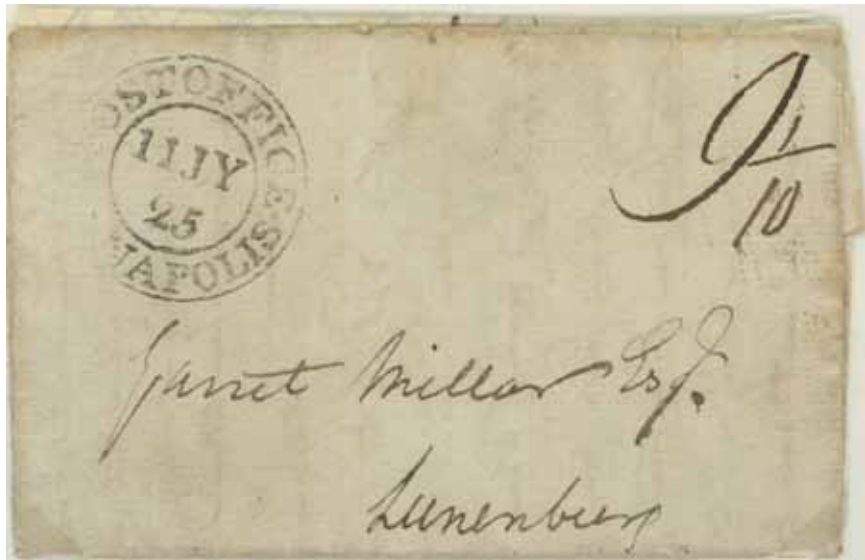 OSTOFFICE
11JY
25
NAPOLIS
9 1/10
Garret Millar Esqr.
Lunenburg